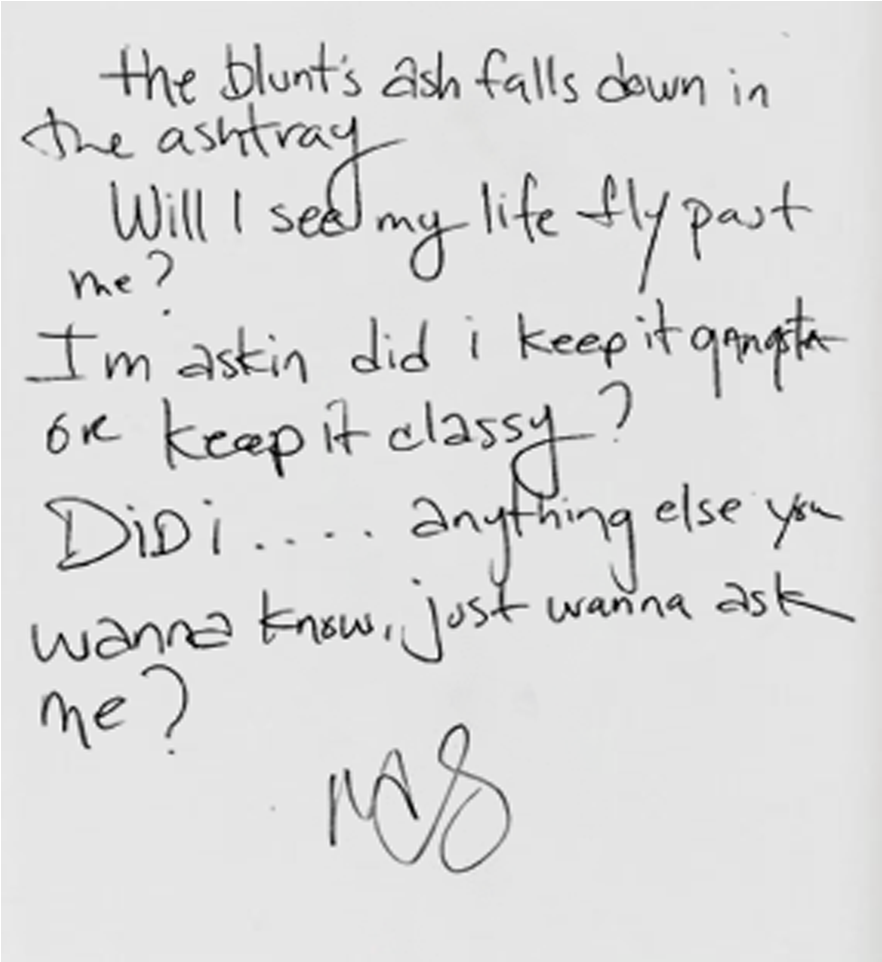 the blunt's ash falls down in
the ashtray
Will I see my life fly past
me?
I'm askin did i keep it gangsta
or keep it classy?
DiD i .... anything else you
wanna know, just wanna ask
me?
NAS